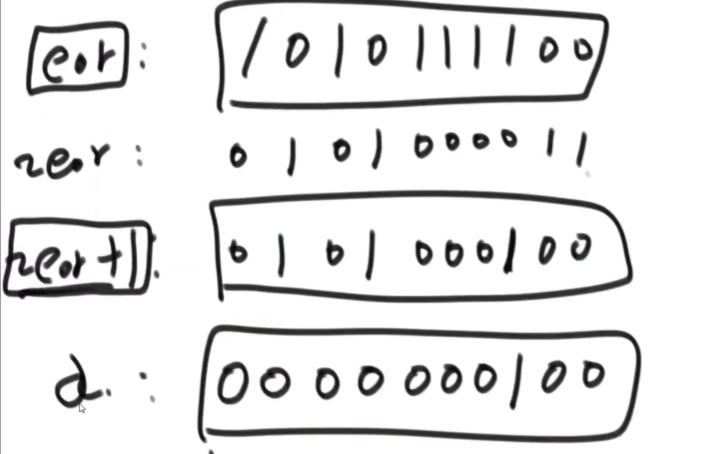 eor: 1010111100
~eor: 0101000011
~eor+1: 0101000100
d: 0000000100